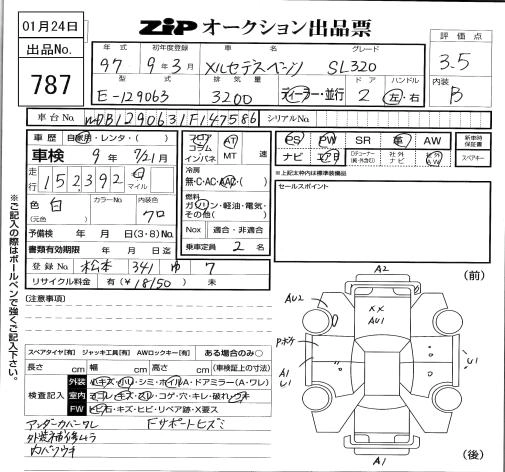 01月24日
出品No.
787
ZIP オークション出品票
年式 初年度登録 車名 グレード
97 9年3月 メルセデスベンツ SL320
型式 排気量 ドア ハンドル
E-129063 3200 ディーラー・並行 2 左・右
評価点
3.5
内装
B
車台No. WDB1290631F147586 シリアルNo.
車歴 自家用・レンタ・( )
車検 9年 7/21月
走行 152392 km マイル
色 白 カラーNo. 内装色 クロ
(元色)
予備検 年 月 日(3・8)No.
書類有効期限 年 月 日迄
登録No. 松本 341 ゆ 7
リサイクル料金 有(¥18150) 未
フロア コラム インパネ
AT
MT 速
冷房
無・C・AC・AAC・( )
燃料
ガソリン・軽油・電気・その他( )
Nox 適合・非適合
乗車定員 2 名
PS PW SR 革 AW
ナビ エアB DFコーナー(純・外含む) 社外ナビ 社外AW
新車時保証書
スペアキー
※上記太枠内は標準装備品
セールスポイント
※ご記入の際はボールペンで強くご記入下さい。
[注意事項]
スペアタイヤ[有] ジャッキ工具[有] AWロックキー[有] ある場合のみ○
長さ cm 幅 cm 高さ cm (車検証上の寸法)
検査記入
外装 小キズ・ハリ・シミ・ホイルA・ドアミラー(A・ワレ)
室内 ヨゴレ・キズ・スレ・コゲ・穴・キレ・破れ・ウキ
FW ヒビ石・キズ・ヒビ・リペア跡・X要ス
アンダーカバーワレ Fサポートヒズミ
外装補修ムラ
内バリウキ
A2
(前)
AU2
XX
AU1
P.ホゲ
A1
U1
U1
A1
(後)